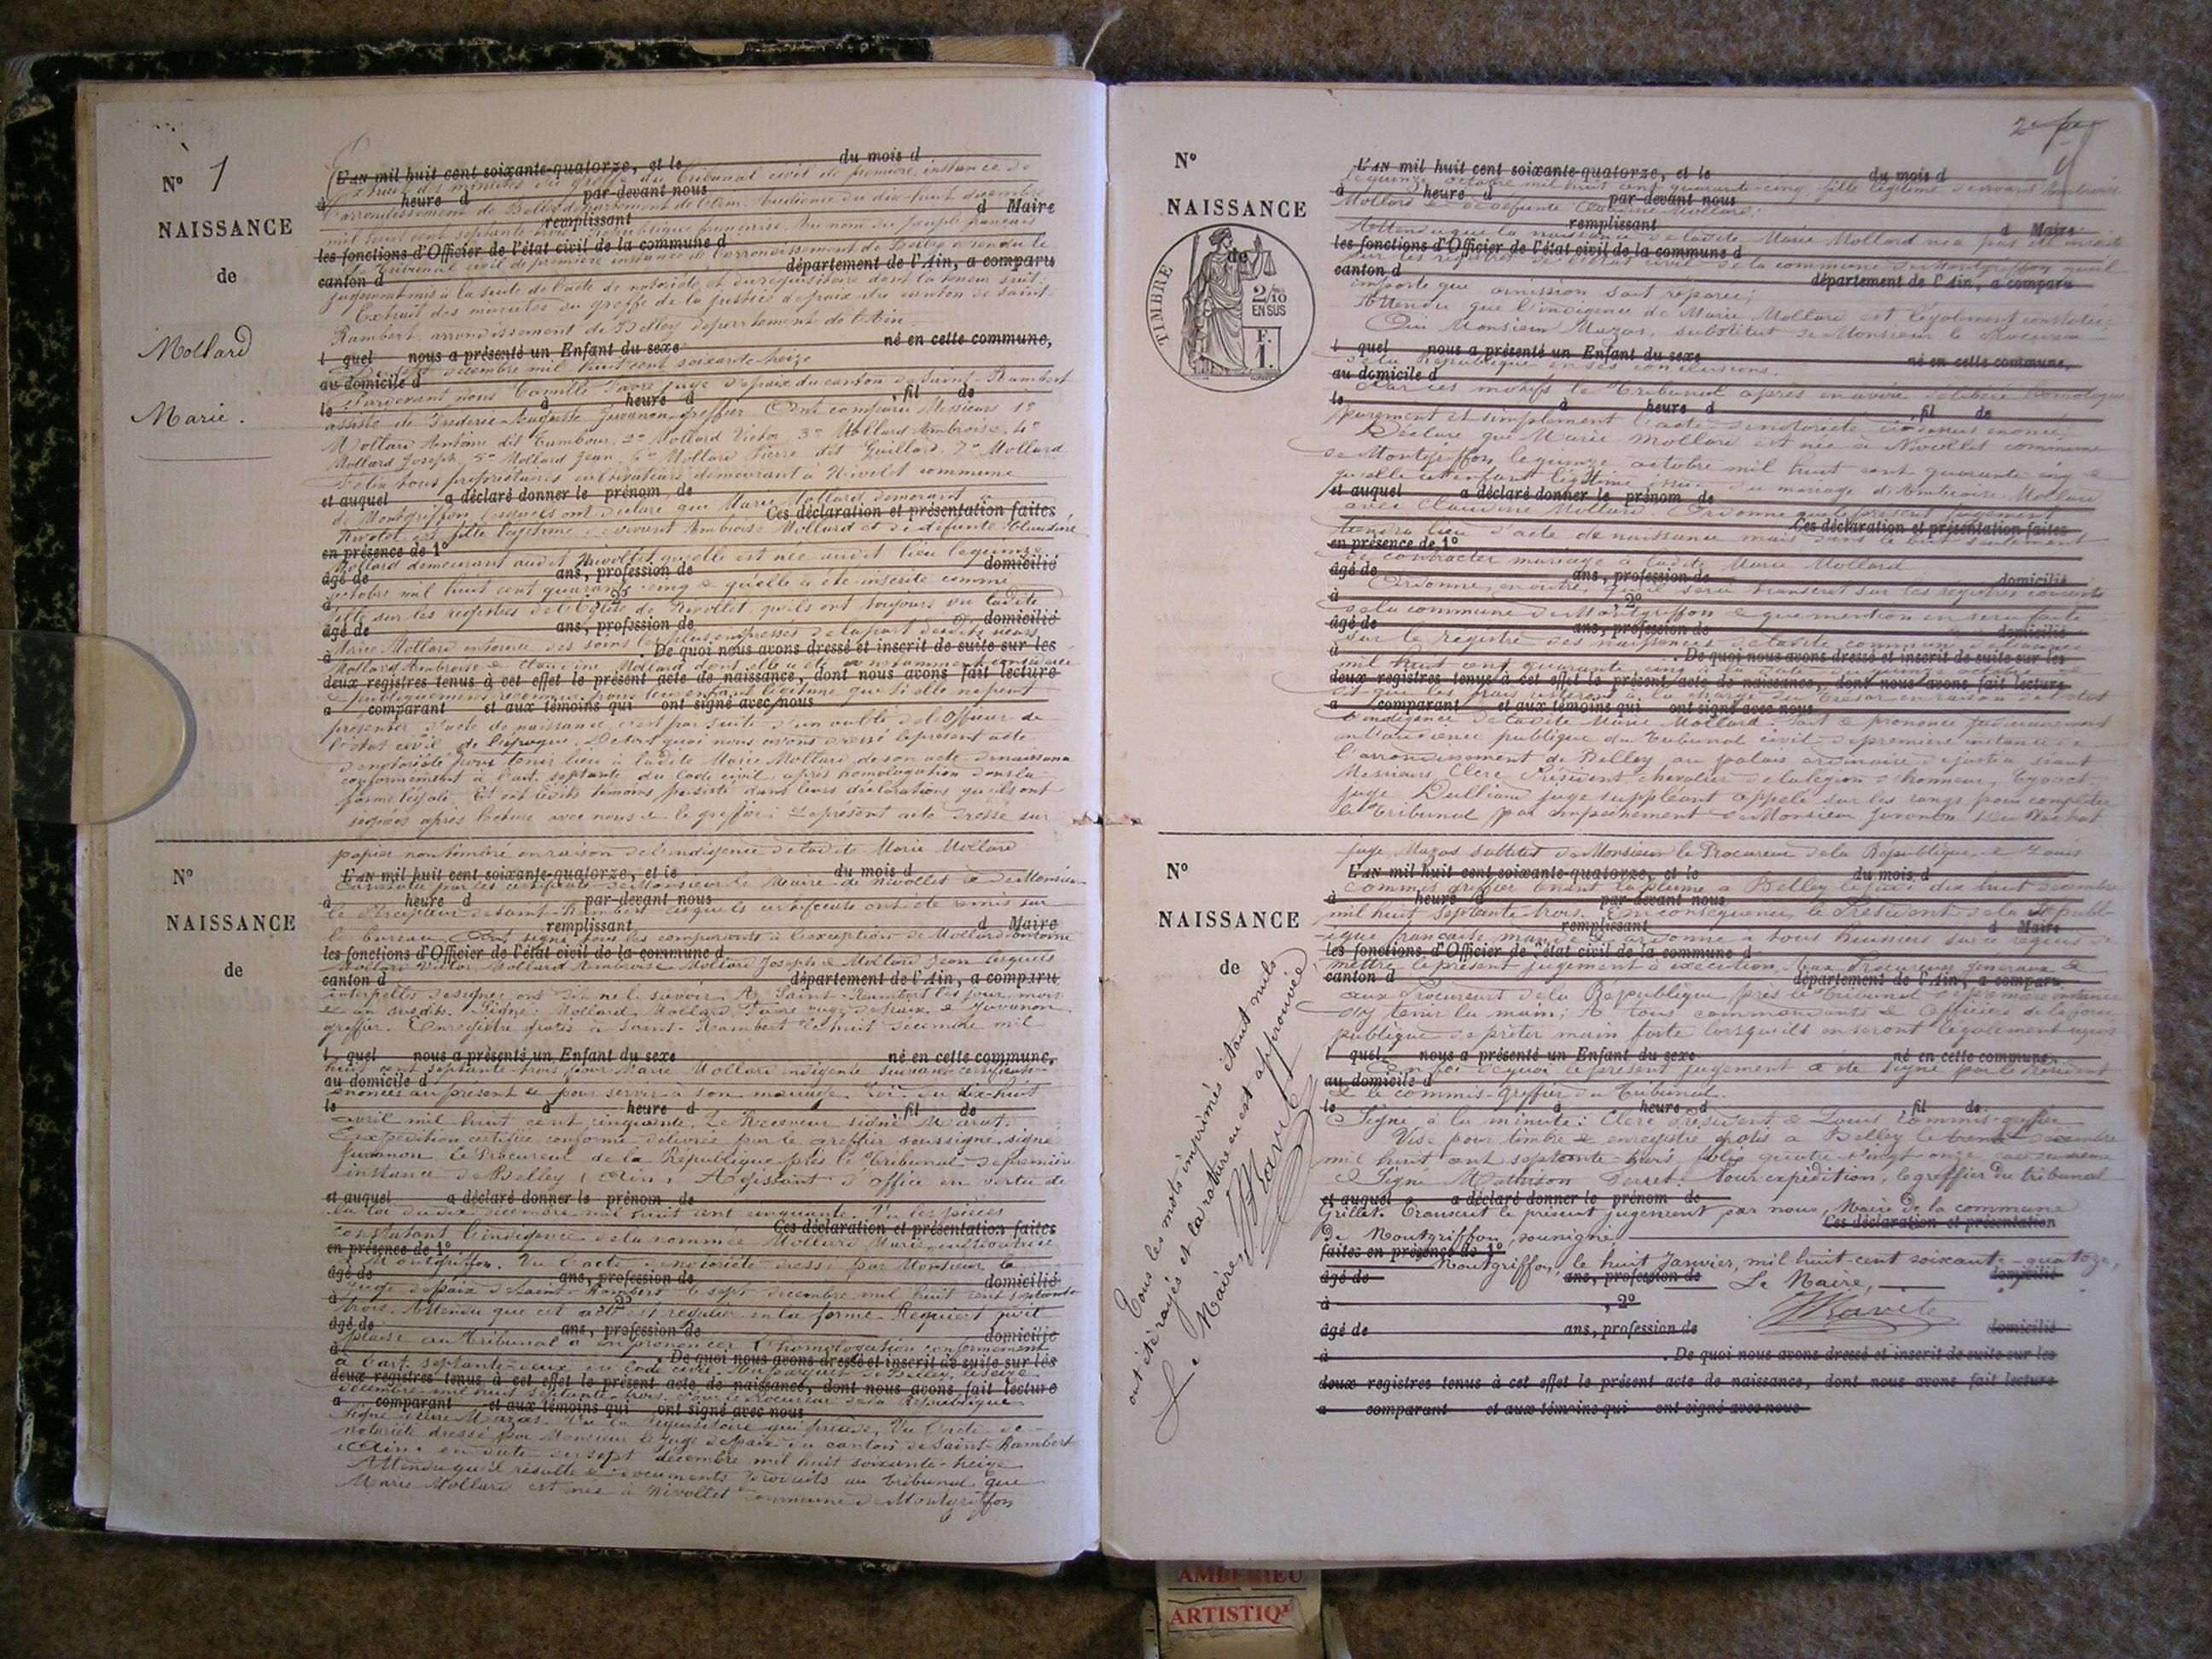 Nº 1
NAISSANCE
de
Mollard
Marie.
L'AN mil huit cent soixante-quatorze, et le du mois d
Extrait des minutes du greffe du Tribunal civil de première instance de
à heure d par-devant nous
l'arrondissement de Belley département de l'Ain. Audience du dix-huit décembre
remplissant d Maire
mil huit cent septante trois. République française. Au nom du peuple français
les fonctions d'Officier de l'état civil de la commune d
Le Tribunal civil de première instance de l'arrondissement de Belley a rendu le
canton d département de l'Ain, a comparu
jugement mis à la suite de l'acte de notoriété et du réquisitoire dont la teneur suit:
Extrait des minutes du greffe de la justice de paix du canton de Saint
Rambert arrondissement de Belley département de l'Ain
l quel nous a présenté un Enfant du sexe né en cette commune,
sept décembre mil huit cent soixante-treize
au domicile d
Pardevant nous Camille Favre juge de paix du canton de Saint-Rambert
le à heure d fil de
assisté de Frédéric-Auguste Juvanon greffier Ont comparu Messieurs 1º
Mollard Antoine dit Tambour, 2º Mollard Victor 3º Mollard Ambroise, 4º
Mollard Joseph, 5º Mollard Jean, 6º Mollard Pierre dit Guillard, 7º Mollard
Félix tous propriétaires cultivateurs demeurant à Nivolet commune
et auquel a déclaré donner le prénom de
de Montgriffon, lesquels ont déclaré que Marie Mollard demeurant à
Ces déclaration et présentation faites
Nivolet est fille légitime de vivant Ambroise Mollard et de défunte Claudine
en présence de 1º
Mollard demeurant audit Nivollet qu'elle est née audit lieu le quinze
âgé de ans, profession de domicilié
octobre mil huit cent quarante-cinq & qu'elle a été inscrite comme
à , 2º
telle sur les registres de l'Eglise de Nivollet, qu'ils ont toujours vu ladite
âgé de ans, profession de domicilié
Marie Mollard entourée des soins les plus empressés de la part desdits sieurs
à . De quoi nous avons dressé et inscrit de suite sur les
Mollard Ambroise & Claudine Mollard dont elle a été constamment considérée
deux registres tenus à cet effet le présent acte de naissance, dont nous avons fait lecture
& publiquement reconnue pour leur enfant légitime que si elle ne peut
a comparant et aux témoins qui ont signé avec nous
présenter d'acte de naissance c'est par suite d'un oubli de l'officier de
l'état civil de l'époque. De tout quoi nous avons dressé le présent acte
de notoriété pour tenir lieu à ladite Marie Mollard de son acte de naissance
conformément à l'art. septante du Code civil après homologation dans la
forme légale. Et ont lesdits témoins persisté dans leurs déclarations qu'ils ont
signées après lecture avec nous & le greffier; Le présent acte dressé sur
Nº
NAISSANCE
de
papier non timbré en raison de l'indigence de ladite Marie Mollard
L'AN mil huit cent soixante-quatorze, et le du mois d
constatée par les certificats de Monsieur le Maire de Nivollet & de Monsieur
à heure d par-devant nous
le Percepteur de Saint-Rambert lesquels certificats ont été remis sur
remplissant d Maire
le bureau. Ont signé tous les comparants à l'exception de Mollard Antoine
les fonctions d'Officier de l'état civil de la commune d
Mollard Victor Mollard Ambroise Mollard Joseph & Mollard Jean lesquels
canton d département de l'Ain, a comparu
interpellés de signer ont dit ne le savoir. A Saint-Rambert les jour, mois
& an susdits. Signé: Mollard, Mollard, Favre juge de paix & Juvanon
greffier. Enregistré gratis à Saint-Rambert le huit décembre mil
l quel nous a présenté un Enfant du sexe né en cette commune,
huit cent septante-trois pour Marie Mollard indigente suivant certificats
au domicile d
énoncés au présent & pour servir à son mariage. Loi du dix-huit
le à heure d fil de
avril mil huit cent cinquante. Le Receveur signé Marat.
Expédition certifiée conforme délivrée par le greffier soussigné, signé
Juvanon. Le Procureur de la République près le Tribunal de première
instance de Belley (Ain) Agissant d'office en vertu de
et auquel a déclaré donner le prénom de
la loi du dix décembre mil huit cent cinquante. Vu les pièces
Ces déclaration et présentation faites
constatant l'indigence de la nommée Mollard Marie cultivatrice
en présence de 1º
à Montgriffon. Vu l'acte de notoriété dressé par Monsieur le
âgé de ans, profession de domicilié
Juge de paix de Saint-Rambert le sept décembre mil huit cent septante
à , 2º
trois. Attendu que cet acte est régulier en la forme Requiert qu'il
âgé de ans, profession de domicilié
plaise au Tribunal d'en prononcer l'homologation conformément
à . De quoi nous avons dressé et inscrit de suite sur les
à l'art. septante-deux du Code civil. Au parquet de Belley, le seize
deux registres tenus à cet effet le présent acte de naissance, dont nous avons fait lecture
décembre mil huit septante-trois. Pour le Procureur de la République
a comparant et aux témoins qui ont signé avec nous
Mazas. Vu le réquisitoire qui précède, Vu l'acte de
notoriété dressé par Monsieur le juge de paix du canton de Saint-Rambert
(Ain) en date du sept décembre mil huit soixante-treize
Attendu qu'il résulte de documents produits au tribunal que
Marie Mollard est née à Nivollet commune de Montgriffon
Nº
NAISSANCE
de
TIMBRE
2/10
EN SUS
F.
1.
L'AN mil huit cent soixante-quatorze, et le du mois d
le quinze octobre mil huit cent quarante-cinq fille légitime de vivant Ambroise
à heure d par-devant nous
Mollard & de défunte Claudine Mollard;
remplissant d Maire
Attendu que la naissance de ladite Marie Mollard n'a pas été inscrite
les fonctions d'Officier de l'état civil de la commune d
sur les registres de l'état civil de la commune de Montgriffon qu'il
canton d département de l'Ain, a comparu
importe que omission soit réparée;
Attendu que l'indigence de Marie Mollard est légalement constatée;
Oui Monsieur Mazas, substitut de Monsieur le Procureur
l quel nous a présenté un Enfant du sexe né en cette commune,
de la République en ses conclusions.
au domicile d
Par ces motifs le Tribunal après en avoir délibéré homologue
le à heure d fil de
purement et simplement l'acte de notoriété ci-dessus énoncé
Déclare que Marie Mollard est née à Nivollet commune
de Montgriffon, le quinze octobre mil huit cent quarante-cinq &
qu'elle est enfant légitime issue du mariage d'Ambroise Mollard
et auquel a déclaré donner le prénom de
avec Claudine Mollard. Ordonne que le présent jugement
Ces déclaration et présentation faites
tiendra lieu d'acte de naissance mais dans le but seulement
en présence de 1º
de contracter mariage à ladite Marie Mollard
âgé de ans, profession de domicilié
Ordonne, en outre, qu'il sera transcrit sur les registres courants
à , 2º
de la commune de Montgriffon & que mention en sera faite
âgé de ans, profession de domicilié
sur le registre des naissances de ladite commune de l'année
à . De quoi nous avons dressé et inscrit de suite sur les
mil huit cent quarante cinq à la
deux registres tenus à cet effet le présent acte de naissance, dont nous avons fait lecture
dit que les frais resteront à la charge du Trésor en raison de l'état
a comparant et aux témoins qui ont signé avec nous
d'indigence de ladite Marie Mollard. Fait & prononcé judiciairement
en l'audience publique du Tribunal civil de première instance de
l'arrondissement de Belley au palais ordinaire de justice séant
Messieurs Clerc Président chevalier de la légion d'honneur,
juge Dulliand juge suppléant appelé sur les rangs pour compléter
le Tribunal par empêchement de Monsieur
Nº
NAISSANCE
de
juge Mazas substitut de Monsieur le Procureur de la République & Louis
L'AN mil huit cent soixante-quatorze, et le du mois d
commis greffier tenant la plume à Belley le jeudi dix huit décembre
à heure d par-devant nous
mil huit septante-trois. En conséquence le Président de la Républi-
remplissant d Maire
-que française mande & ordonne à tous huissiers sur ce requis de
les fonctions d'Officier de l'état civil de la commune d
mettre le présent jugement à exécution, Aux Procureurs généraux &
canton d département de l'Ain, a comparu
aux Procureurs de la République près le Tribunal de première instance
d'y tenir la main; A tous commandants & Officiers de la force
publique de prêter main forte lorsqu'ils en seront légalement requis
l quel nous a présenté un Enfant du sexe né en cette commune,
En foi de quoi le présent jugement a été signé par le Président
au domicile d
& le commis-greffier du Tribunal.
le à heure d fil de
Signé à la minute: Clerc Président & Louis commis-greffier
Visé pour timbre & enregistré gratis à Belley le trente décembre
mil huit cent septante-trois, folio quatre-vingt onze, case
Signé Mathison Perret. Pour expédition, le greffier du tribunal
et auquel a déclaré donner le prénom de
Grillet. Transcrit le présent jugement par nous, Maire de la commune
Ces déclaration et présentation
de Montgriffon, soussigné
faites en présence de 1º
Montgriffon, le huit Janvier, mil huit-cent soixante-quatorze,
âgé de ans, profession de domicilié
Le Maire,
à , 2º
âgé de ans, profession de domicilié
à . De quoi nous avons dressé et inscrit de suite sur les
deux registres tenus à cet effet le présent acte de naissance, dont nous avons fait lecture
a comparant et aux témoins qui ont signé avec nous
Tous les mots imprimés étant nuls
ont été rayés et la rature en est approuvée
Le Maire,
AMBERIEU
ARTISTIQ